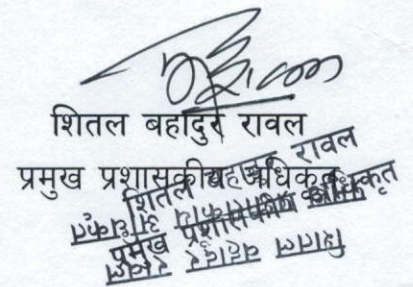 शितल बहादुर रावल
प्रमुख प्रशासकीय अधिकृत
शितल बहादुर रावल
प्रमुख प्रशासकीय अधिकृत
शितल बहादुर रावल